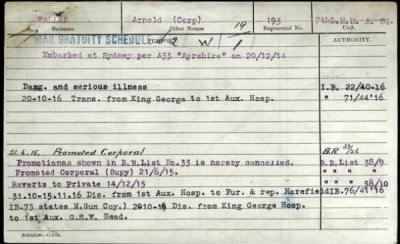 WALLAD Arnold (Corp) 19 193 7th L.H.D. A. Sq.
Surname Other Names Regimental No. Unit.
WAR GRATUITY SCHEDULE 2 W 1 AUTHORITY.
Embarked at Sydney per A33 "Ayrshire" on 20/12/14
Dang. and serious illness I.B. 22/40-16
20-10-16 Trans. from King George to 1st Aux. Hosp. " 71/44'16
21.6.15. Promoted Corporal B.R.
Promotions shown in B.R.List No.33 is hereby cancelled. B.R.List 38/9
Promoted Corporal (Supy) 21/6/15. " " " "
Reverts to Private 14/12/15 " " " 38/10
31.10-15.11-16 Dis. from 1st Aux. Hosp. to Fur. & rep. Harefield IB.76/41'16
(IB.75 states M.Gun Coy.) 2010-16 Dis. from King George Hosp.
to 1st Aux. G.S.W. Head.